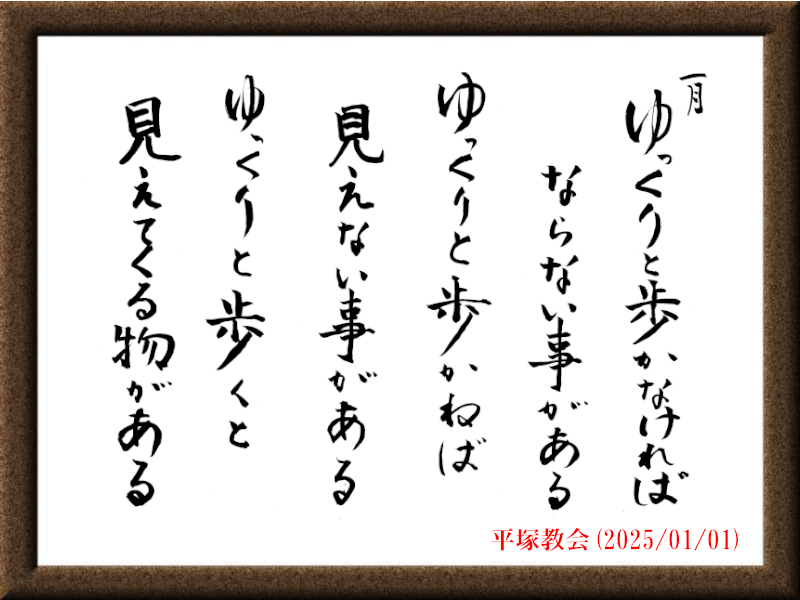 一月
ゆっくりと歩かなければ
ならない事がある
ゆっくりと歩かねば
見えない事がある
ゆっくりと歩くと
見えてくる物がある
平塚教会(2025/01/01)